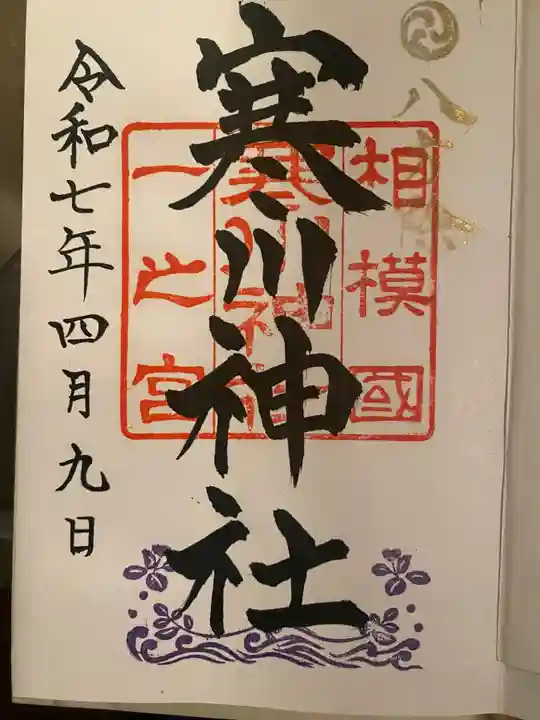 八方除
相模國
寒川神社
一之宮
寒川神社
令和七年四月九日